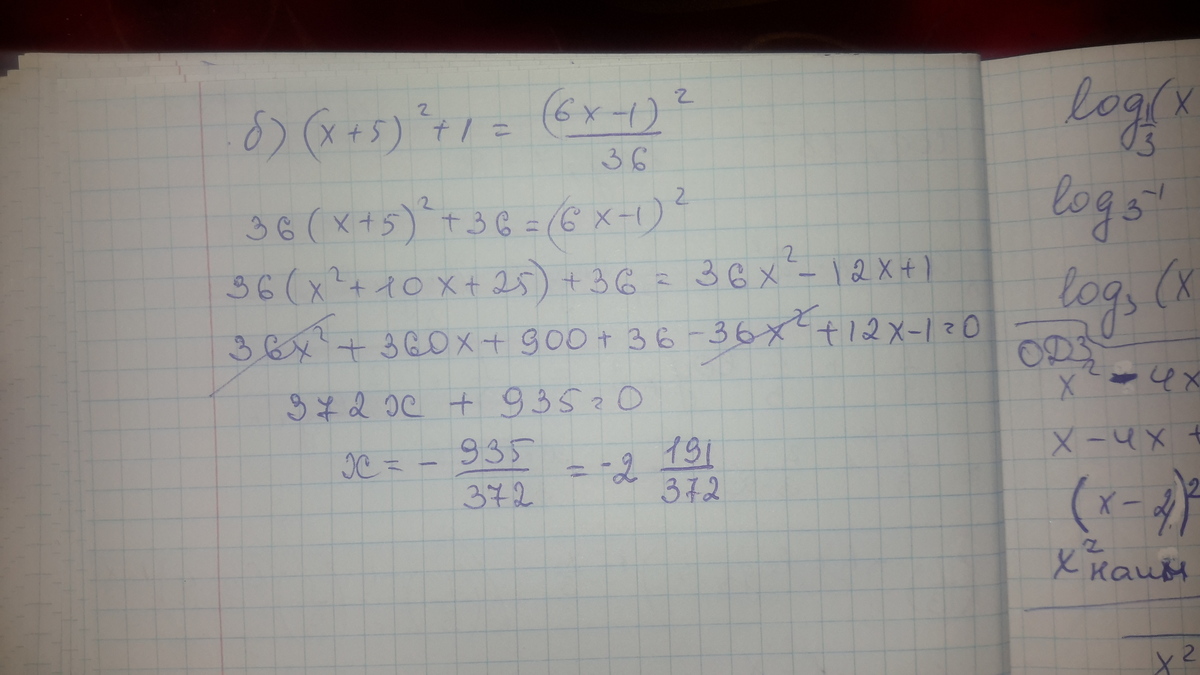 б) (x+5)² + 1 = (6x-1)²/36
36(x+5)² + 36 = (6x-1)²
36(x² + 10x + 25) + 36 = 36x² - 12x + 1
36x² + 360x + 900 + 36 - 36x² + 12x - 1 = 0
372x + 935 = 0
x = - 935/372 = -2 191/372
log 1/3 (x
log 3⁻¹
log₃ (x
ОДЗ
x² - 4x
x - 4x +
(x - 2)²
x² наим
x²